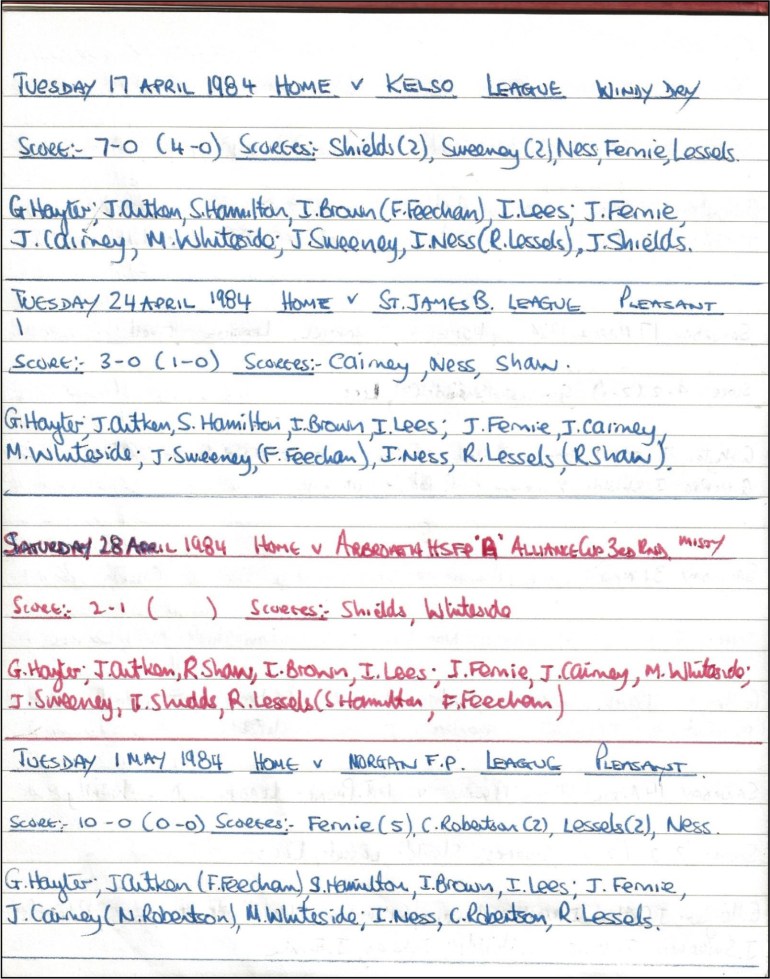 TUESDAY 17 APRIL 1984 HOME v KELSO LEAGUE WINDY DRY
SCORE:- 7-0 (4-0) SCORERS:- Shields(2), Sweeney(2), Ness, Fernie, Lessels.
G.Hayter; J.Aitken, S.Hamilton, I.Brown (F.Feechan), I.Lees; J.Fernie,
J.Cairney, M.Whiteside; J.Sweeney, I.Ness (R.Lessels), J.Shields.
TUESDAY 24 APRIL 1984 HOME v ST. JAMES B. LEAGUE PLEASANT
SCORE:- 3-0 (1-0) SCORERS:- Cairney, Ness, Shaw.
G.Hayter; J.Aitken, S.Hamilton, I.Brown, I.Lees; J.Fernie, J.Cairney,
M.Whiteside; J.Sweeney, (F.Feechan), I.Ness, R.Lessels (R Shaw).
SATURDAY 28 APRIL 1984 HOME v ARBROATH HSFP 'A' ALLIANCE CUP 3RD RND. MISTY
SCORE:- 2-1 ( ) SCORERS:- Shields, Whiteside
G.Hayter; J.Aitken, R Shaw, I.Brown, I.Lees; J.Fernie, J.Cairney, M.Whiteside;
J.Sweeney, J.Shields, R.Lessels (S Hamilton, F.Feechan)
TUESDAY 1 MAY 1984 HOME v MORGAN F.P. LEAGUE PLEASANT.
SCORE:- 10-0 (0-0) SCORERS:- Fernie(5), C.Robertson (2), Lessels(2), Ness.
G.Hayter; J Aitken (F.Feechan) S.Hamilton, I.Brown, I.Lees; J. Fernie,
J.Cairney (N.Robertson), M.Whiteside; I.Ness, C.Robertson, R.Lessels.